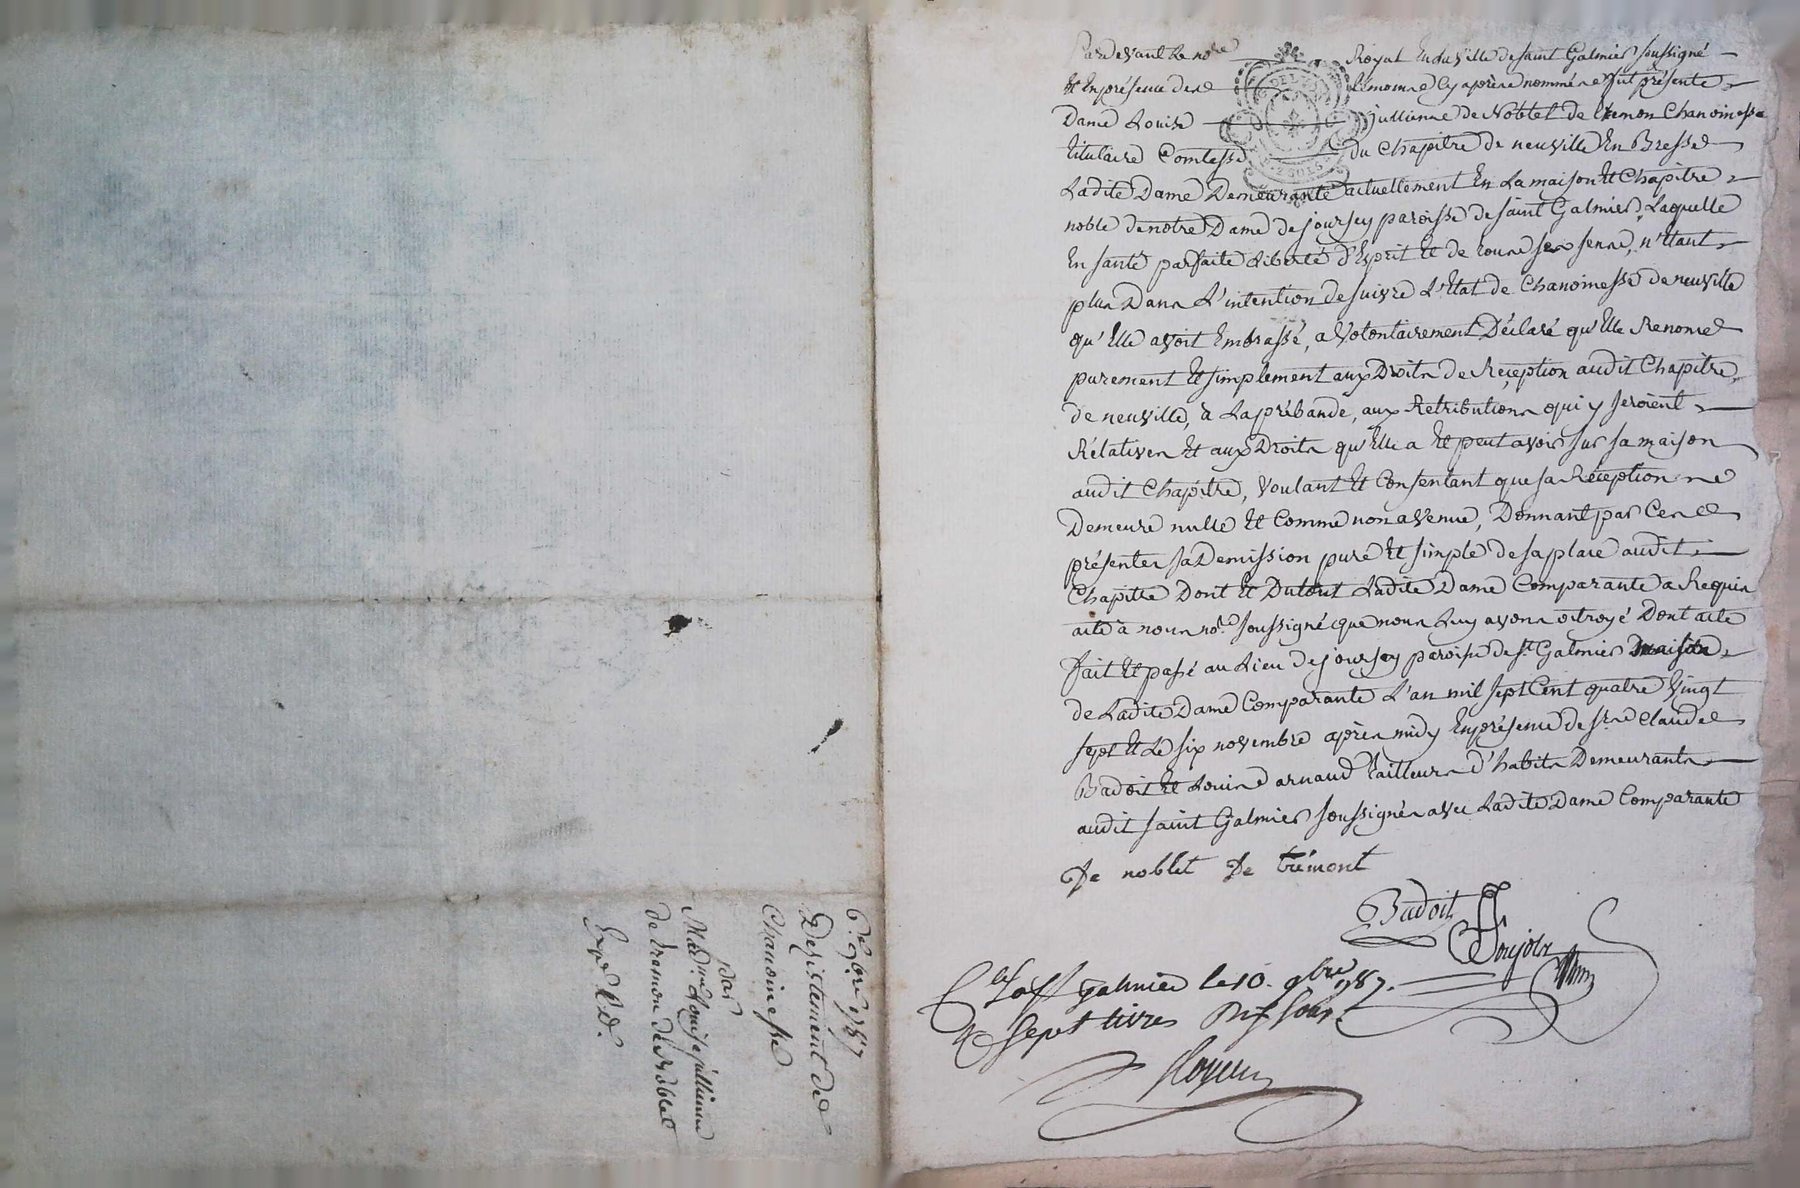 Pardevant Le nore Royal En la Ville de saint Galmier soussigné
Et En présence des témoins cy après nommés fut présente
Dame Louise jullienne de Noblet de tremon Chanoinesse
titulaire Comtesse du Chapitre de neuville En Bresse
Ladite Dame Demeurante actuellement En La maison Et Chapitre
noble de notre Dame de joursey paroisse de saint Galmier, Laquelle
En santé parfaite Liberté d'Esprit Et de tous ses sens, n'Etant
plus Dans L'intention de suivre L'Etat de Chanoinesse de neuville
qu'Elle avoit Embrassé, a Volontairement Déclaré qu'Elle Renonce
purement Et simplement aux Droits de Réception audit Chapitre
de neuville, à La prébande, aux Retributions qui y seroient
Rélatives Et aux Droits qu'Elle a Et peut avoir sur sa maison
audit Chapitre, Voulant Et Consentant que sa Réception
Demeure nulle Et Comme non avenue, Donnant par Ces
présentes sa Demission pure Et simple de sa place audit
Chapitre Dont Et Dutout Ladite Dame Comparante a Requis
acte à nous nore. soussigné que nous Luy avons octroyé Dont acte
fait Et passé au Lieu de joursey paroisse de St. Galmier maison
de Ladite Dame Comparante L'an mil sept Cent quatre Vingt
sept Et Le six novembre après midy En présence de srs Claude
Badoit Et Louis arnaud Tailleurs d'habits Demeurants
audit saint Galmier soussignés avec Ladite Dame Comparante
De noblet De trémont
Badoit
Coujols
St galmier le 10. 9bre 1787.
sept livres dix sols
6e. 9bre 1787
Desistement de
Chanoinesse
par
Made. Louise jullienne
de tremon de Noblet
Expd.